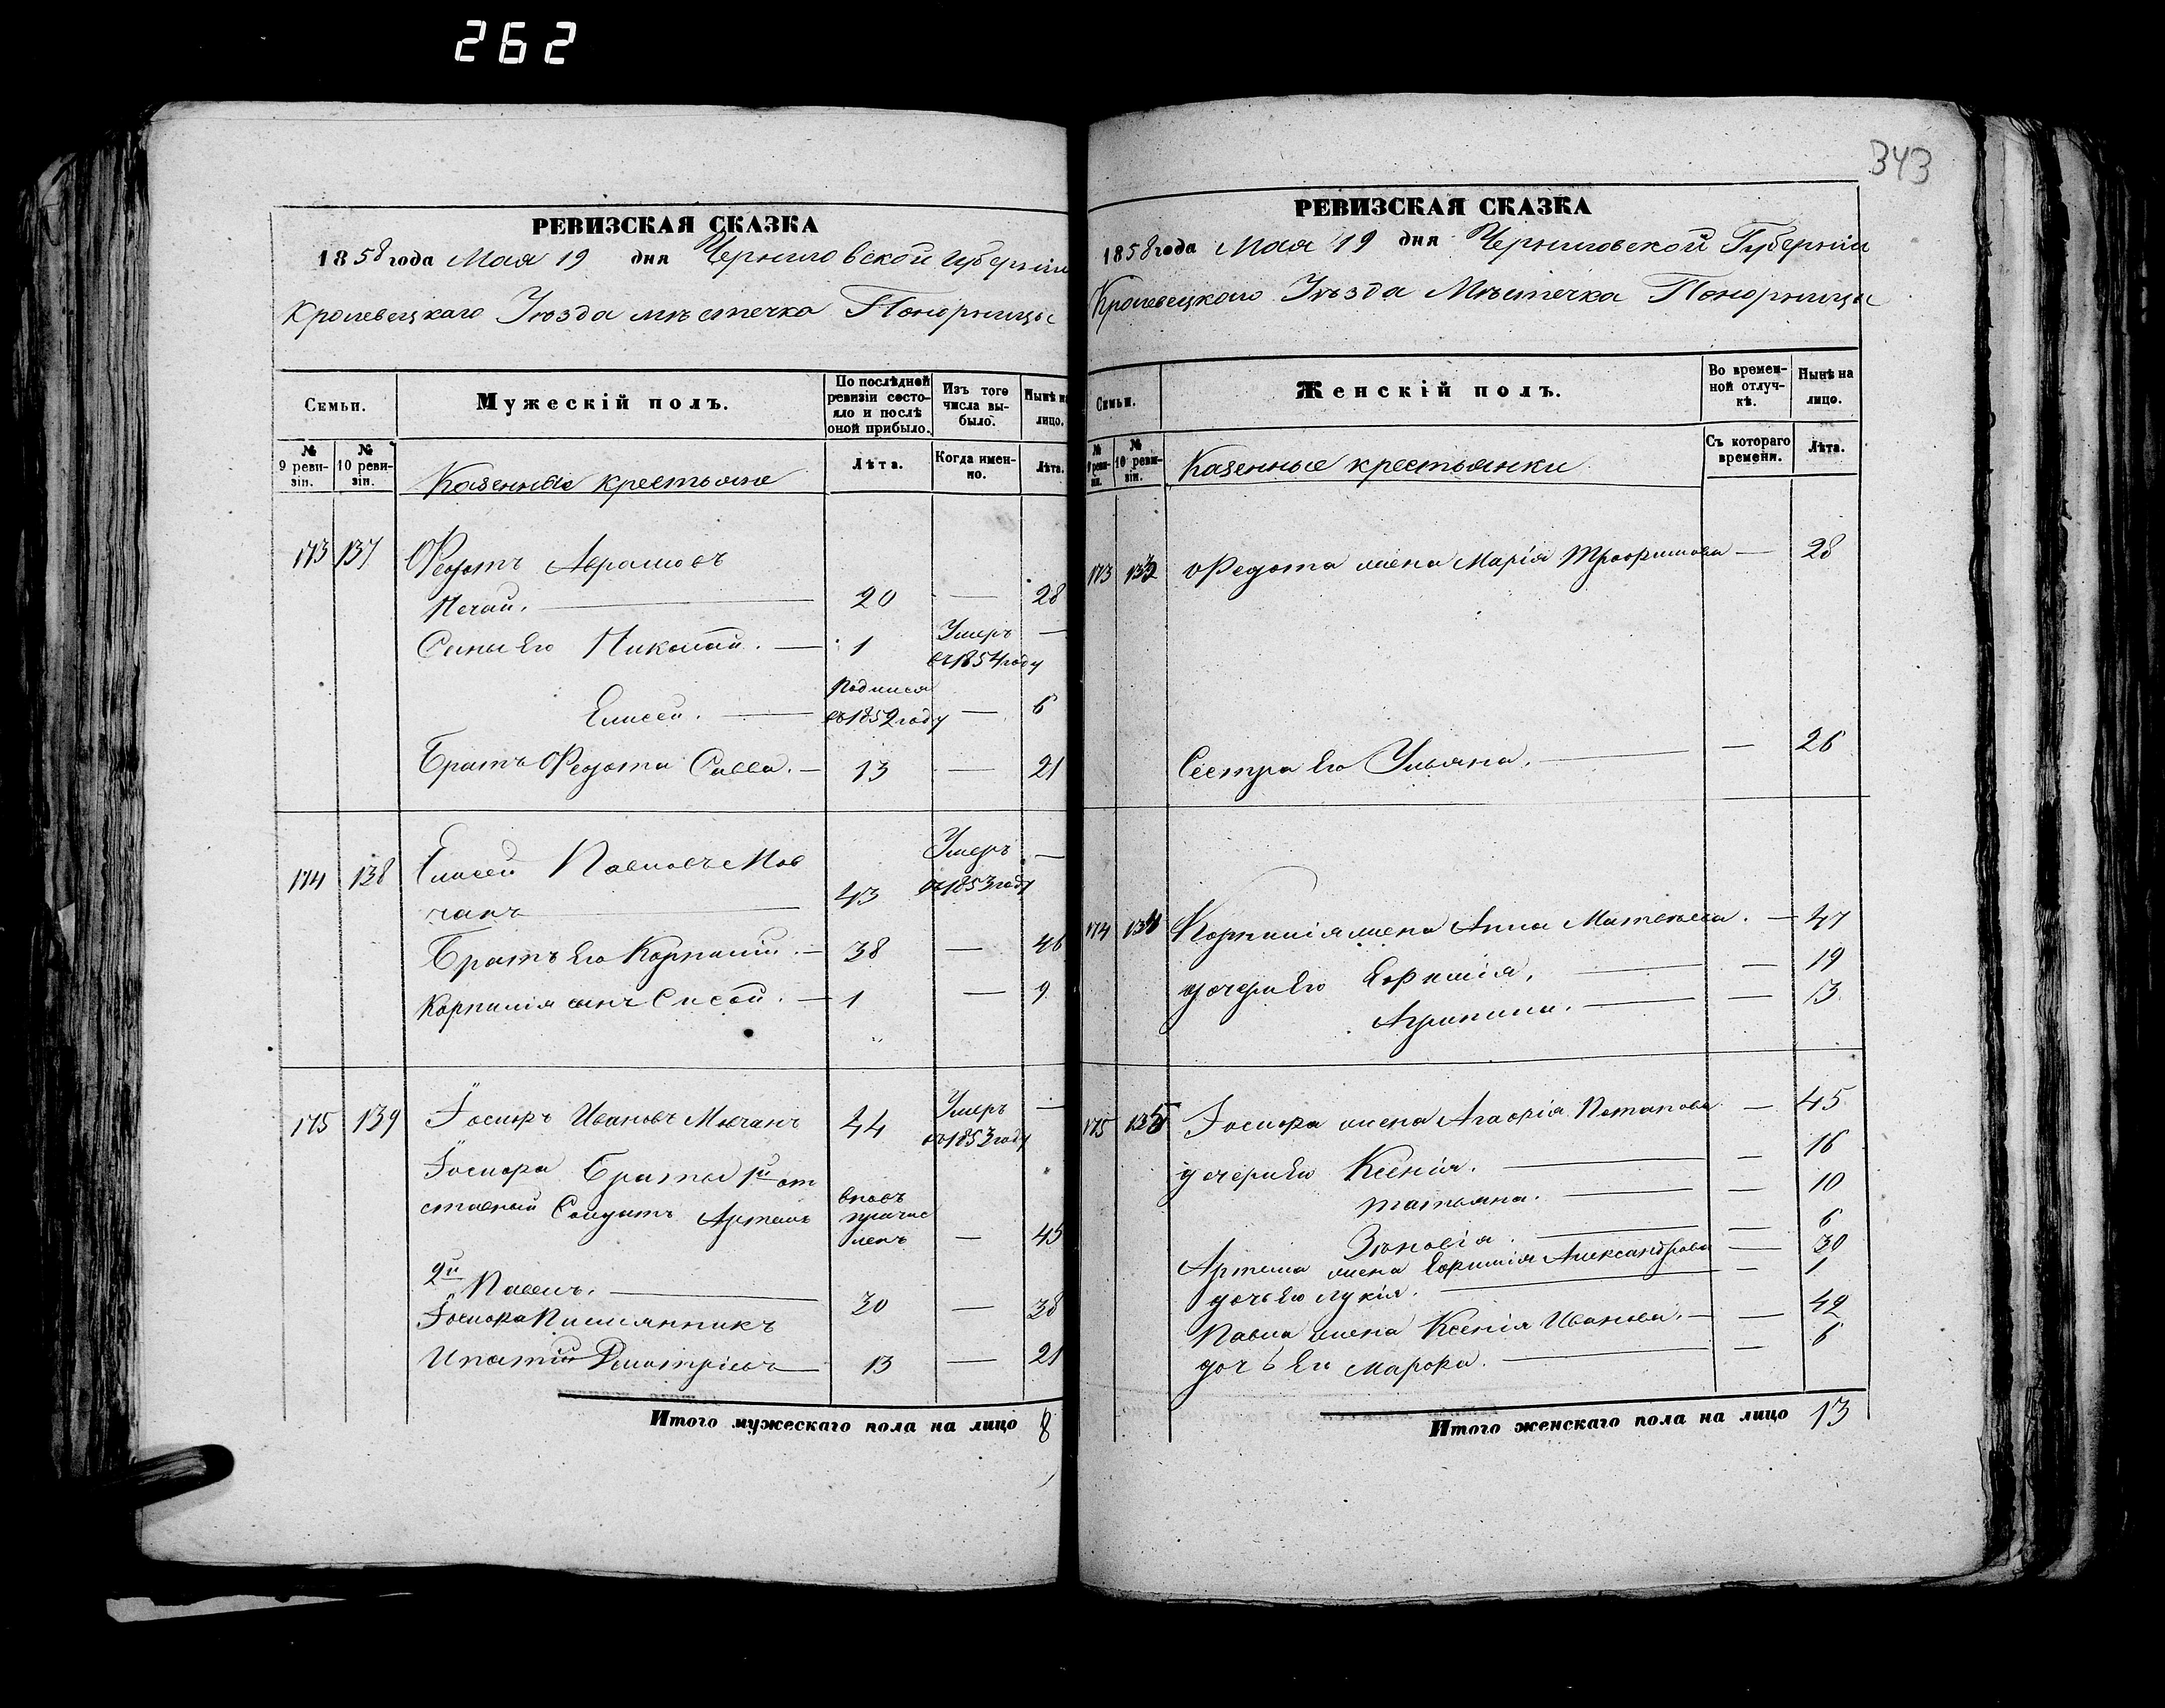 262
343
РЕВИЗСКАЯ СКАЗКА
1858 года Мая 19 дня Черниговской Губерніи
Кролевецкаго Уѣзда мѣстечка Понорницы
Семьи.
Мужескій полъ.
По послѣдней ревизіи состояло и послѣ оной прибыло.
Изъ того числа выбыло.
Нынѣ на лицо.
№ 9 ревизіи.
№ 10 ревизіи.
Казенные крестьяне
Лѣта.
Когда именно.
Лѣта.
173 137 Ѳедотъ Абрамовъ
Нечай. — 20 — 28
Сыны его Николай. — 1 Умеръ въ 1854 году —
Елисей. — Родился въ 1852 году — 6
Братъ Ѳедота Савва. — 13 — 21
174 138 Елисей Павловъ Мов
чанъ — 43 Умеръ въ 1853 году —
Братъ его Корнилій. — 38 — 46
Корнилія сынъ Сисой. — 1 — 9
175 139 Іосифъ Ивановъ Мовчанъ 44 Умеръ въ 1853 году —
Іосифа Братья 1й от
ставный Солдатъ Артемъ вновь причисленъ — 45
2й Павелъ. — 30 — 38
Іосифа Племянникъ
Ипатій Дмитріевъ — 13 — 21
Итого мужескаго пола на лицо 8
РЕВИЗСКАЯ СКАЗКА
1858 года Мая 19 дня Черниговской Губерніи
Кролевецкаго Уѣзда Мѣстечка Понорницы
Семьи.
Женскій полъ.
Во временной отлучкѣ.
Нынѣ на лицо.
№ 9 ревизіи.
№ 10 ревизіи.
Казенные крестьянки
Съ котораго времени.
Лѣта.
173 Ѳедота жена Марія Трофимова — 28
Сестра его Ульяна. — — 26
174 Корнилія жена Анна Матвѣева. — 47
дочери его Евфимія. — — 19
Агрипина. — — 13
175 Іосифа жена Агафія Потапова — 45
дочери его Ксенія. — — 16
Татьяна. — — 10
Зѣновія. — — 6
Артема жена Евфимія Александрова — 30
дочь его Лукія. — — 1
Павла жена Ксенія Иванова. — — 42
дочь его Марфа. — — 6
Итого женскаго пола на лицо 13